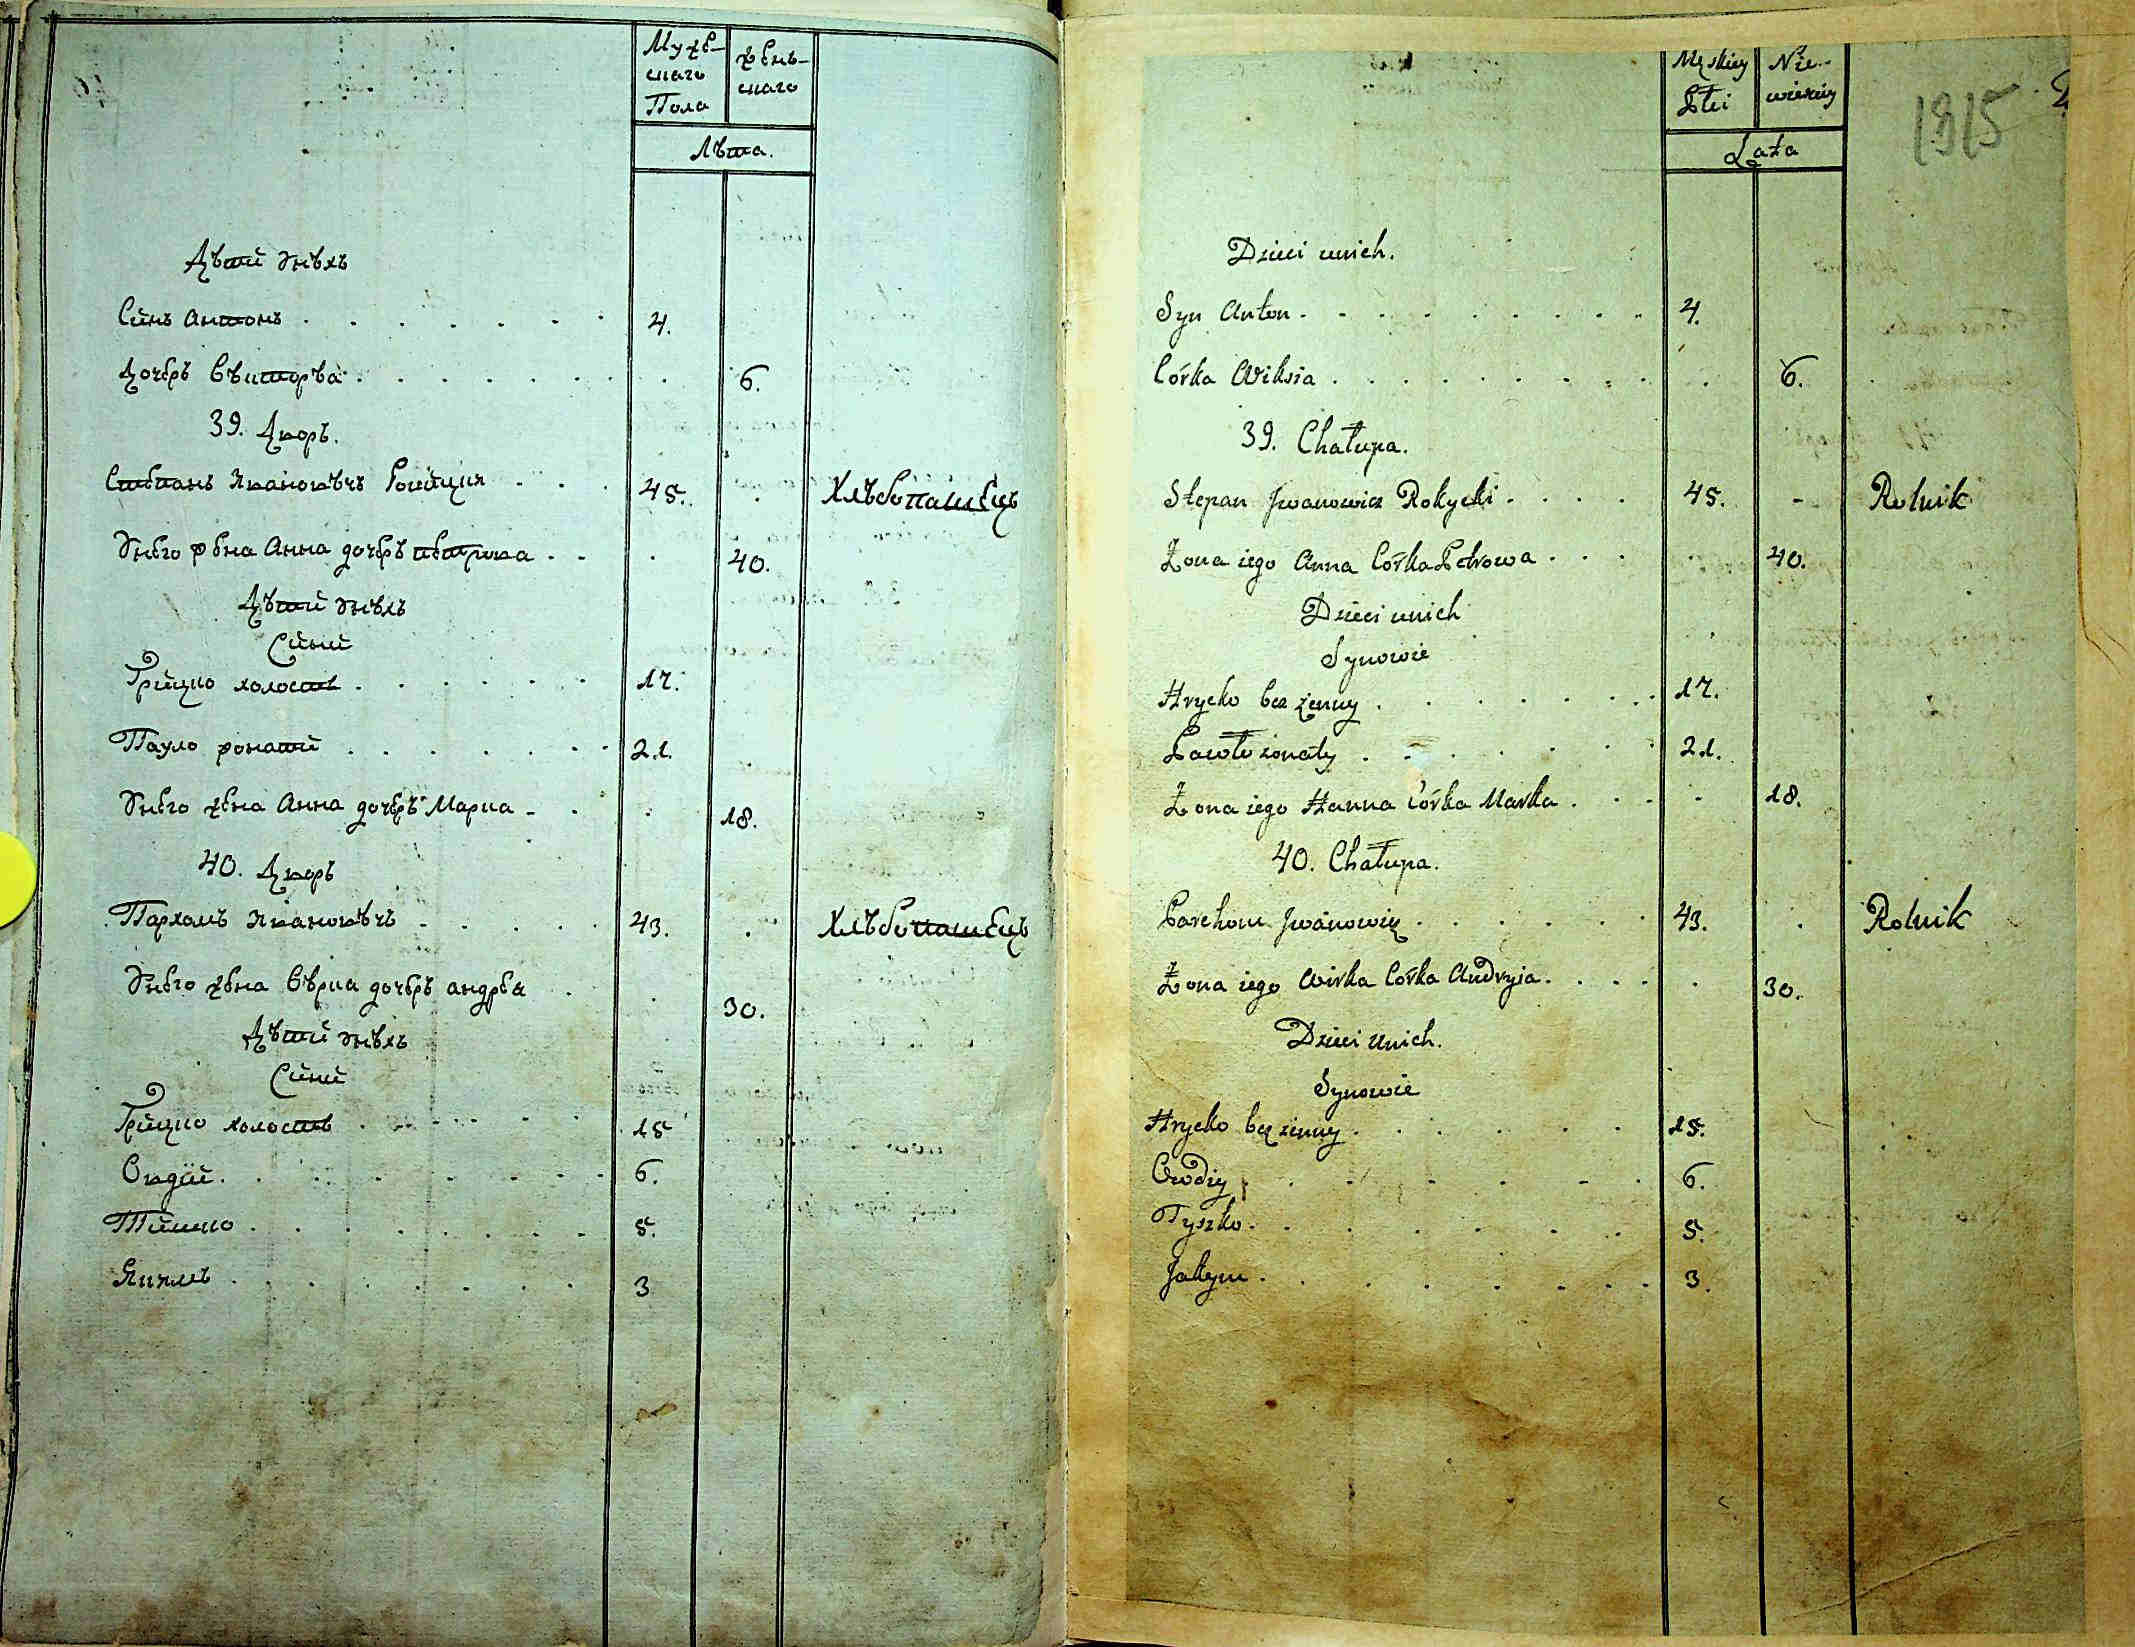 Муже-
скаго
Пола
жень-
скаго
Лѣта.
Дѣти унѣхъ
Синъ Антонъ 4.
Дочерь Вѣкторѣа 6.
39. Дворъ.
Степанъ Ивановѣчъ Рокицкя 45. Хлѣбопашецъ
Унего жена Анна дочерь петрова 40.
Дѣти унѣхъ
Сини
Грицко холостъ 17.
Пауло жонати 21.
Унего жена Анна дочерь Марка 18.
40. Дворъ
Пархомъ Ивановѣчъ 43. Хлѣбопашецъ
Унего жена Вѣрка дочерь андрея 30.
Дѣти унѣхъ
Сини
Грицко холостъ 15
Овдій 6.
Тишко 5.
Якимъ 3
Męskiey
Płci
Nie-
wieściey
Lata
1315
Dzieci unich.
Syn Anton 4.
Córka Wiksia 6.
39. Chałupa.
Stepan Jwanowicz Rokycki 45. Rolnik
Żona iego Anna Córka Petrowa 40.
Dzieci unich
Synowie
Hrycko bez żenny 17.
Pawło żonaty 21.
Żona iego Hanna Córka Marka 18.
40. Chałupa.
Parchom Jwanowicz 43. Rolnik
Żona iego Wirka Córka Andryia 30.
Dzieci unich.
Synowie
Hrycko bez żenny 15.
Owdiy 6.
Tyszko 5.
Jakym 3.